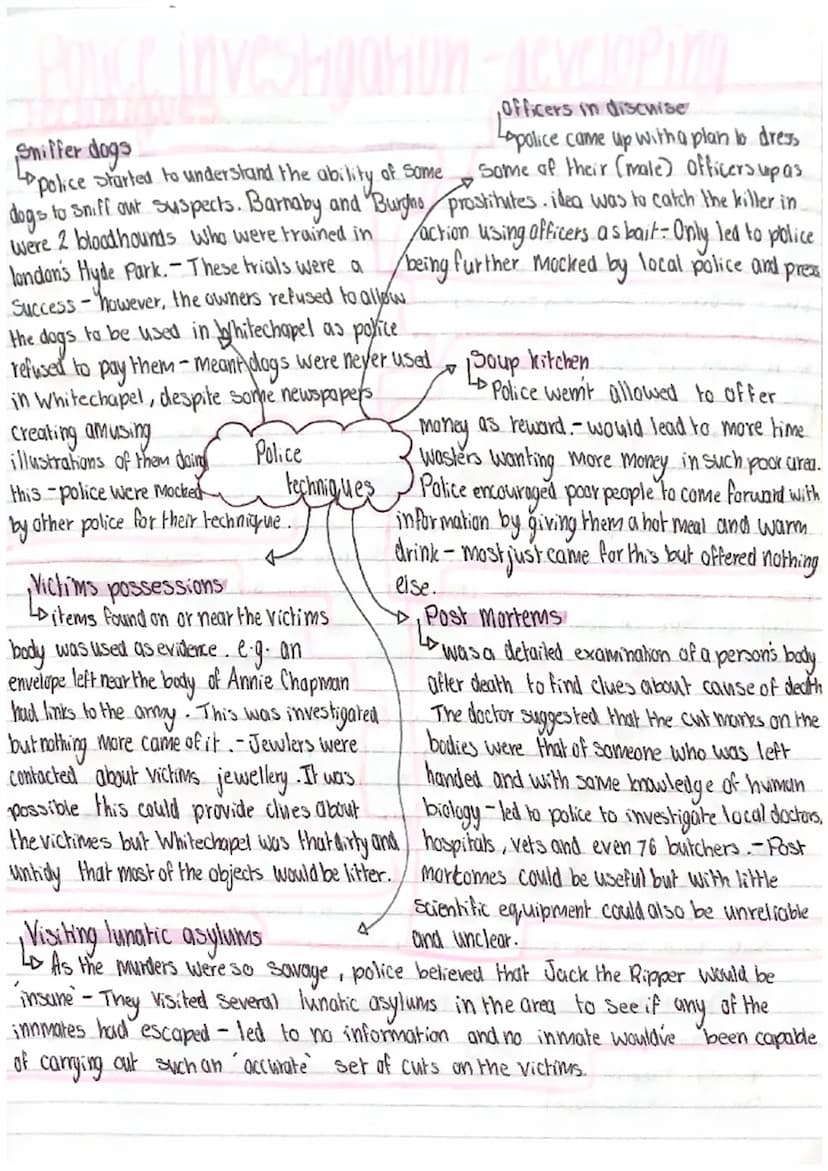 Police investigation - developing
techniques
Sniffer dogs
police started to understand the ability of some
dogs to sniff out suspects. Barnaby and Burgho
were 2 bloodhounds who were trained in
london's Hyde Park. - These trials were a
success - however, the owners refused to allow
the dogs to be used in Whitechapel as police
refused to pay them - meant dogs were never used
in Whitechapel, despite some newspapers
creating amusing
illustrations of them doing
this - police were mocked
by other police for their technique.
Officers in discuise
police came up with a plan to dress
some of their (male) officers up as
prostitutes. idea was to catch the killer in
action using officers as bait - Only led to police
being further mocked by local police and press
Soup kitchen
Police wem't allowed to offer
money as reward. - would lead to more time
wasters wanting more money in such poor area.
Police encouraged poor people to come forward with
information by giving them a hot meal and warm
drink - most just came for this but offered nothing
else.
Police
techniques
Victims possessions
items found on or near the victims
body was used as evidence. e.g. an
envelope left near the body of Annie Chapman
had links to the army. This was investigated
but nothing more came of it. - Jewlers were
contacted about victims jewellery. It was
possible this could provide clues about
the victimes but Whitechapel was that dirty and
untidy that most of the objects would be litter.
Post Mortems
was a detailed examination of a person's body
after death to find clues about cause of death
The doctor suggested that the cut marks on the
bodies were that of someone who was left
handed and with some knowledge of human
biology - led to police to investigate local doctors,
hospitals, vets and even 76 butchers. - Post
mortomes could be useful but with little
scientific equipment could also be unreliable
and unclear.
Visiting lunatic asylums
As the murders were so savage, police believed that Jack the Ripper would be
'insane' - They visited several lunatic asylums in the area to see if any of the
innmates had escaped - led to no information and no inmate would've been capable
of carrying out such an 'accurate' set of cuts on the victims.